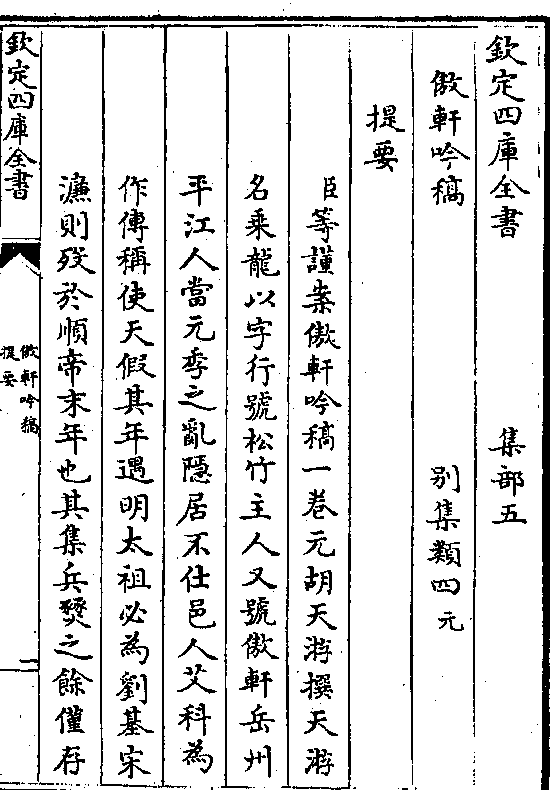 欽定四庫全書　集部五
傲軒吟稿　別集類四元
提要
臣等謹案傲軒吟稿一卷元胡天游撰天游
名乘龍以字行號松竹主人又號傲軒岳州
平江人當元季之亂隱居不仕邑人艾科為
作傳稱使天假其年遇明太祖必為劉基宋
濂則歿於順帝末年也其集兵燹之餘僅存
欽定四庫全書
傲軒吟稿
提要
一